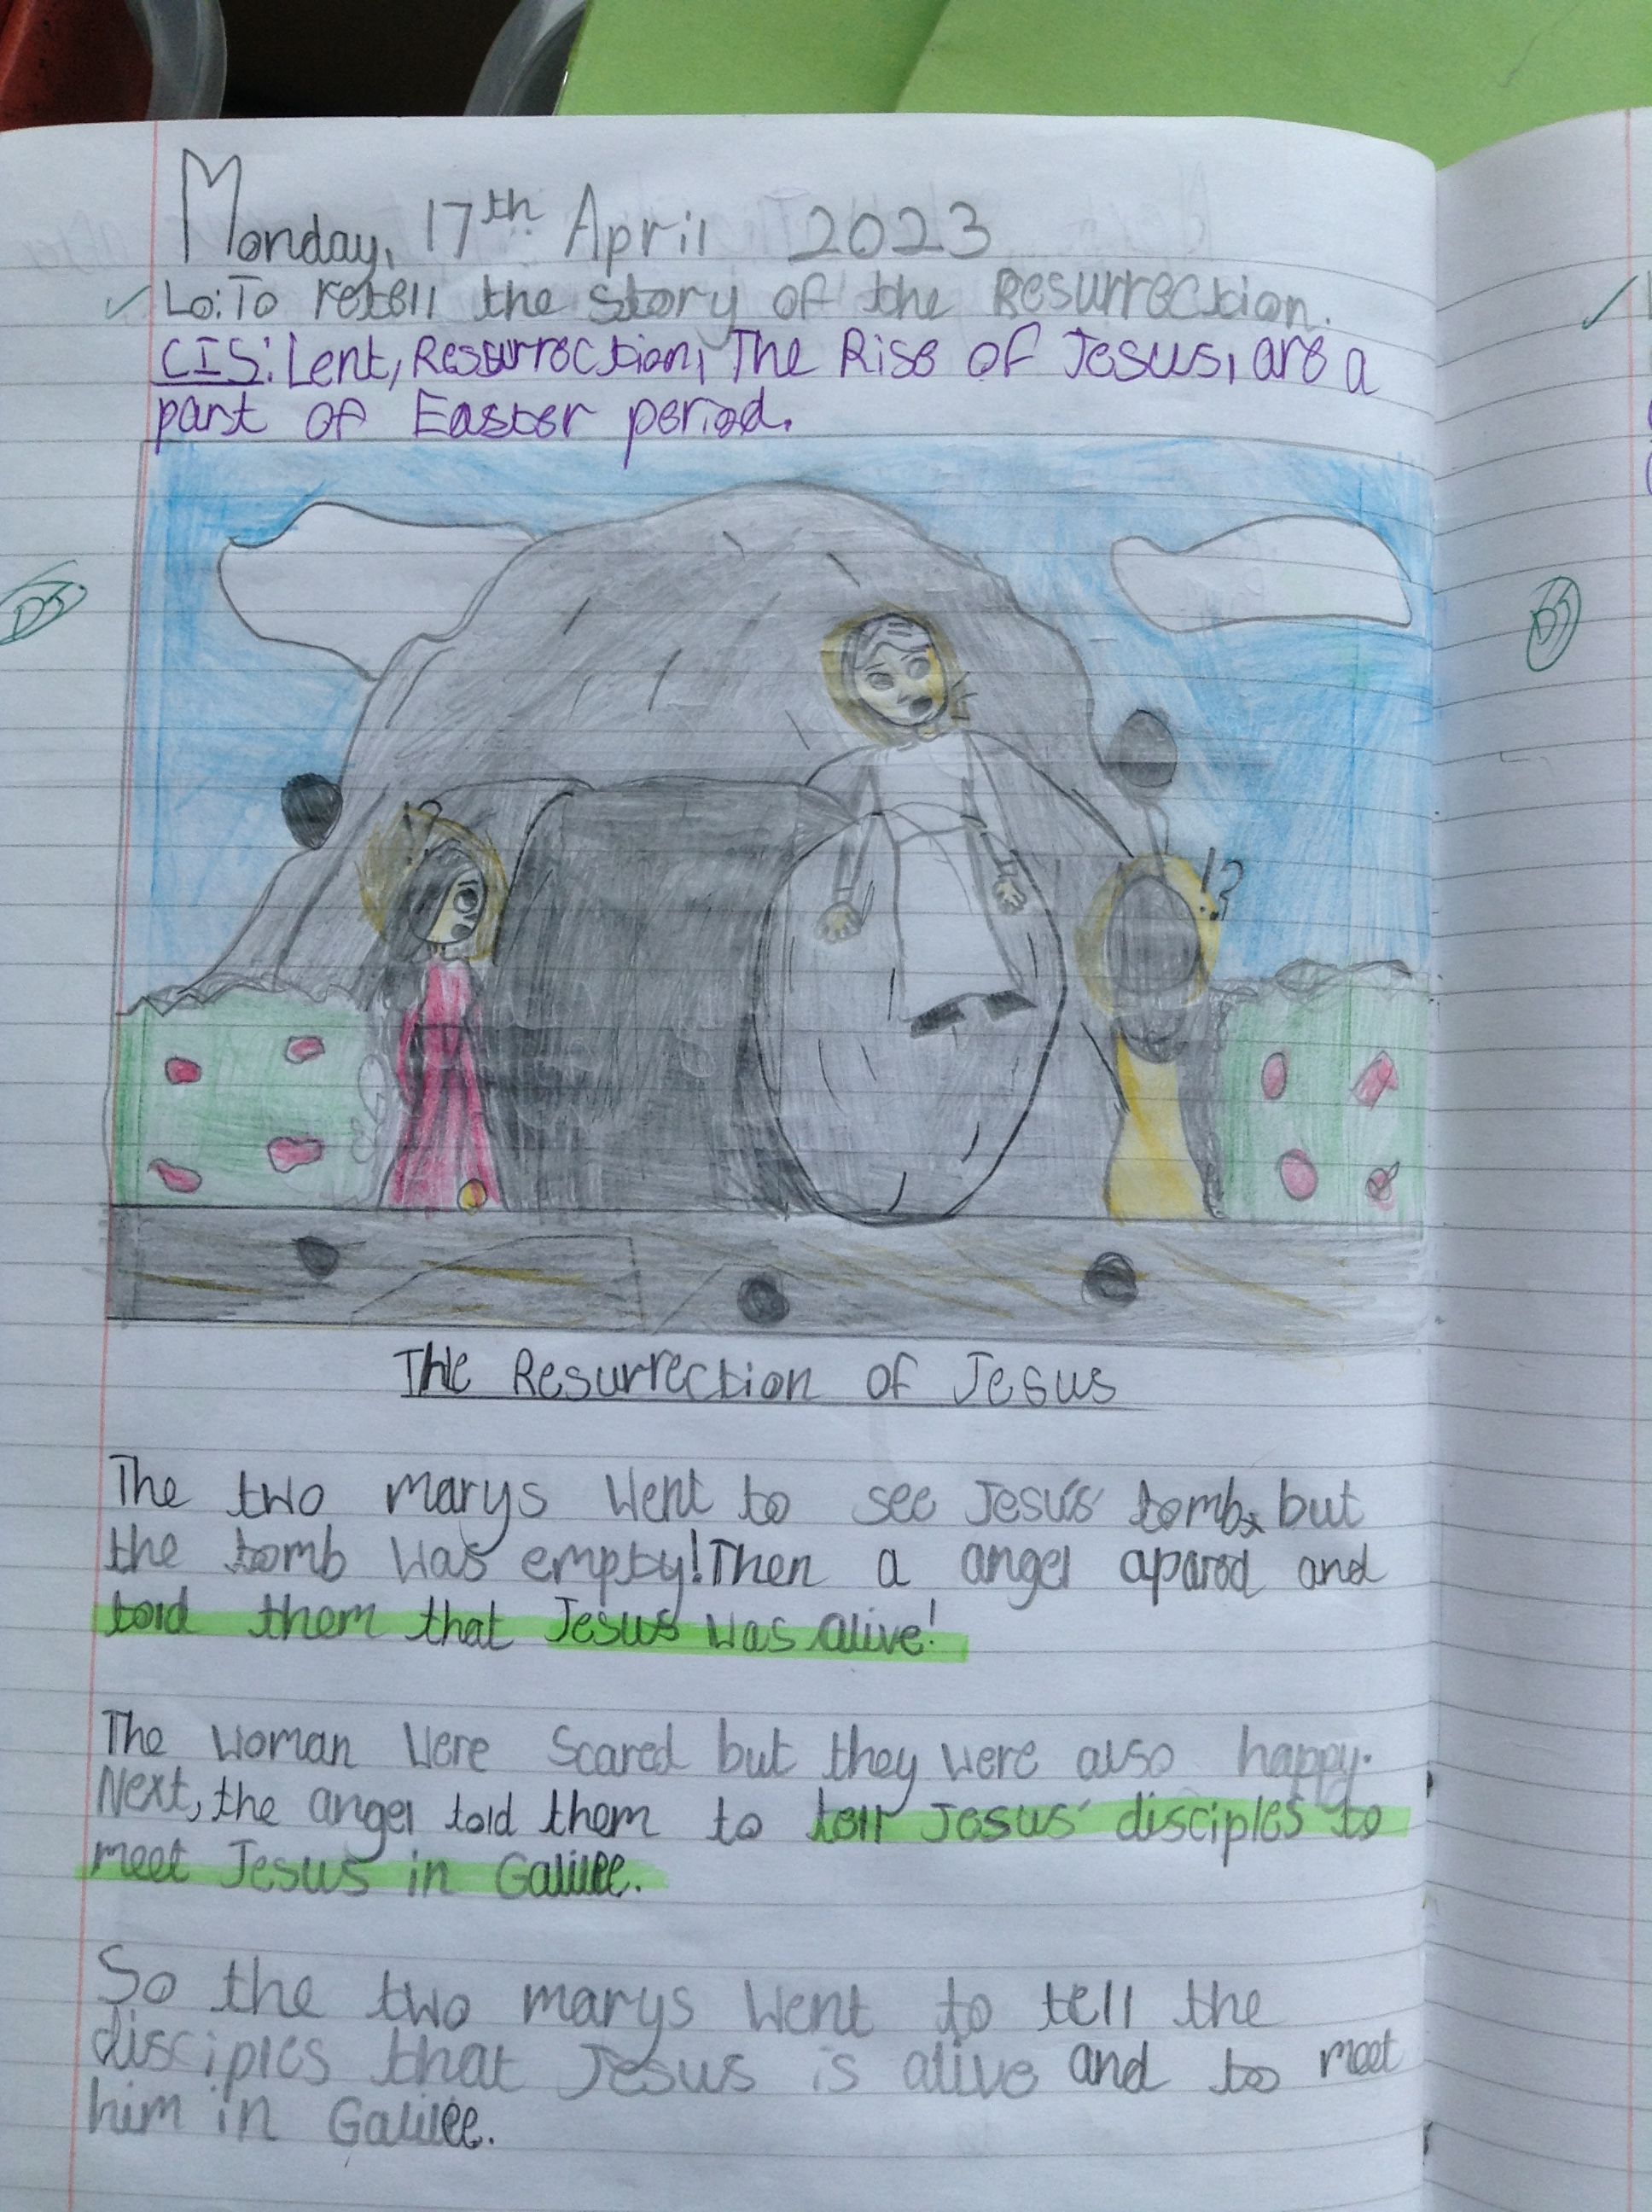 Monday, 17th April 2023
✓ Lo: To retell the story of the Resurrection.
CIS: Lent, Resurrection, The Rise of Jesus, are a
part of Easter period.
DJ
DJ
!?
!?
The Resurrection of Jesus
The two marys went to see Jesus' tomb, but
the tomb was empty! Then a angel apared and
told them that Jesus was alive!
The woman were scared but they were also happy.
Next, the angel told them to tell Jesus' disciples to
meet Jesus in Galilee.
So the two marys went to tell the
disciples that Jesus is alive and to meet
him in Galilee.